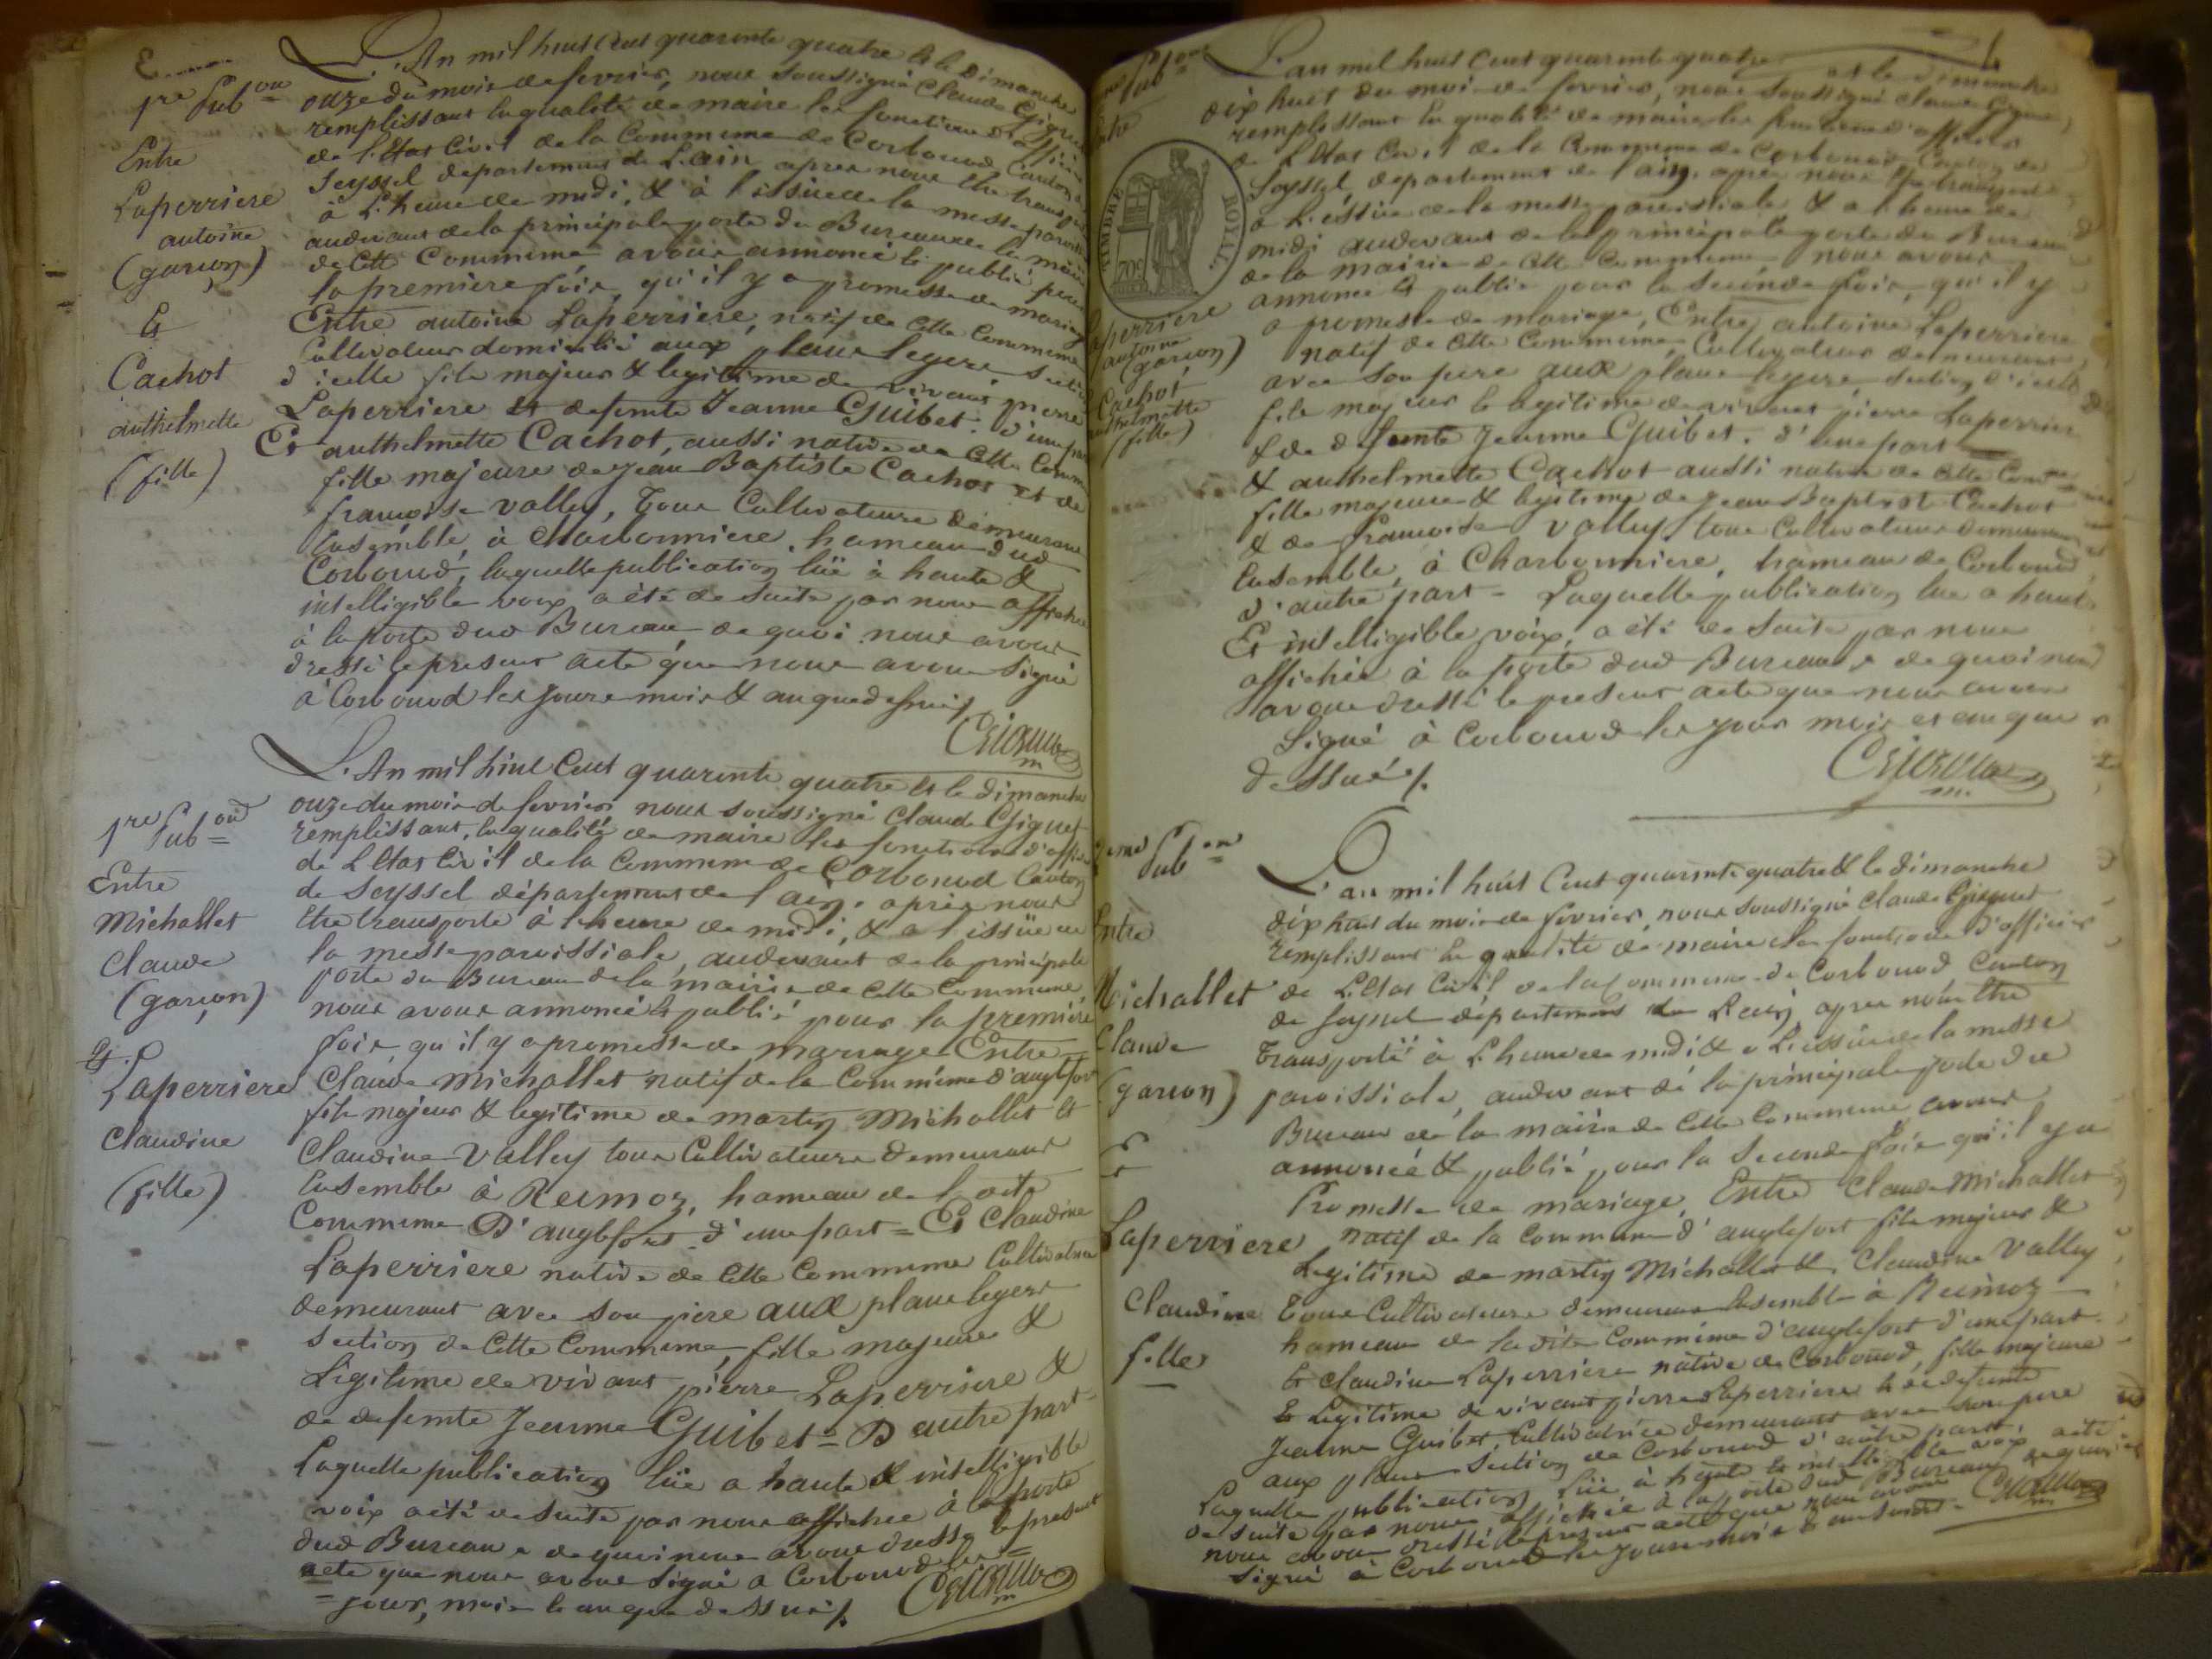 1re Pub on
Entre
Laperriere
antoine
(garçon)
Et
Cachot
anthelmette
(fille)
L'An mil huit Cent quarente quatre & le Dimanche
onze du mois de fevrier, nous soussigné Claude Giguet
remplissant la qualité de maire les fonctions d'officier
de l'Etat Civil de la Commune de Corbonod Canton
Seyssel departement de L'ain apres nous etre transporté
à L'heure de midi, & à l'issue de la messe paroissiale
audevant de la principale porte du Bureau de la mairie
de Cette Commune avons annoncé & publié pour
la premiere fois, qu'il y a promesse de mariage
Entre antoine Laperriere, natif de Cette Commune
Cultivateur domicilié aux plans legere Section
d'icelle fils majeur & legitime de vivant pierre
Laperriere et defunte Jeanne Guibet. d'une part
Et anthelmette Cachot, aussi native de Cette Commune
fille majeure de Jean Baptiste Cachot et de
francoise valley, tous Cultivateurs demeurant
Ensemble à Charbonniere, hameau dud
Corbonod, laquelle publication lüe à haute &
intelligible voix a été de suite par nous affichée
à la porte dud Bureau, de quoi nous avons
dressé le present acte que nous avons signé
à Corbonod les jours mois & an que dessus
1re Pub on
Entre
Michallet
Claude
(garçon)
Et
Laperriere
Claudine
(fille)
L'An mil huit Cent quarente quatre & le dimanche
onze du mois de fevrier nous soussigné Claude Giguet
remplissant, la qualité de maire les fonctions d'officier
de L'Etat Civil de la Commune de Corbonod Canton
de Seyssel département de l'ain, après nous
être transporté à l'heure de midi, & a l'issüe de
la messe paroissiale, audevant de la principale
porte du Bureau de la mairie de Cette Commune
nous avons annoncé & publié pour la premiere
fois qu'il y a promesse de mariage Entre
Claude Michallet natif de la Commune d'anglefort
fils majeur & legitime de martin Michallet &
Claudine Valley tous Cultivateurs demeurant
Ensemble à Reimoz, hameau de ladite
Commune D'anglefort d'une part = Et Claudine
Laperriere native de Cette Commune Cultivatrice
demeurant avec son père aux plans legere
section de Cette Commune, fille majeure &
Legitime de vivant pierre Laperriere &
de defunte Jeanne Guibet = D'autre part =
Laquelle publication lüe a haute & intelligible
voix a été de suite par nous affichée à la porte
dud Bureau de quoi nous avons dressé le present
acte que nous avons signé a Corbonod les =
= jour, mois & an que dessus
Pub on
TIMBRE ROYAL
70c
Laperriere
antoine
(garçon)
Cachot
anthelmette
(fille)
L'an mil huit Cent quarente quatre et le dimanche
dix huit du mois de fevrier, nous soussigné Claude Giguet
remplissant la qualité de maire les fonctions d'officier
de L'Etat Civil de la Commune de Corbonod Canton de
Seyssel, departement de l'ain, apres nous etre transporté
à L'issüe de la messe paroissiale & a l'heure de
midi audevant de la principale porte du Bureau
de la mairie de Cette Commune nous avons
annoncé & publié pour la seconde fois, qu'il y
a promesse de mariage, Entre antoine Laperriere
natif de Cette Commune, Cultivateur demeurant
avec son pere aux plans legere, section d'icelle
fils majeur & legitime de vivant pierre Laperriere
& de defunte Jeanne Guibet. d'une part
& anthelmette Cachot aussi native de Cette Commune
fille majeure & legitime de Jean Baptiste Cachot
& de francoise valley, tous Cultivateurs demeurant
Ensemble, à Charbonniere, hameau de Corbonod
d'autre part = Laquelle publication lue a haute
Et intelligible voix, a été de suite par nous
affichée à la porte dud Bureau, de quoi nous
avons dressé le present acte que nous avons
Signé à Corbonod les jour mois et an que
dessus
2eme Pub on
Entre
Michallet
Claude
(garçon)
Et
Laperriere
Claudine
fille
L'an mil huit Cent quarente quatre & le dimanche
dix huit du mois de fevrier, nous soussigné Claude Giguet
remplissant la qualité de maire les fonctions d'officier
de L'Etat Civil de la Commune de Corbonod Canton
de Seyssel département de L'ain, apres nous être
transporté à L'heure de midi & a L'issüe de la messe
paroissiale, audevant de la principale porte du
Bureau de la mairie de Cette Commune avons
annoncé & publié pour la Seconde fois qu'il y a
Promesse de mariage, Entre Claude Michallet
natif de la Commune d'anglefort fils majeur &
Legitime de martin Michallet & Claudine Valley
tous Cultivateurs demeurant Ensemble à Reimoz
hameau de ladite Commune d'anglefort d'une part.
Et Claudine Laperriere native de Corbonod, fille majeure
& Legitime de vivant pierre Laperriere & de defunte
Jeanne Guibet, Cultivatrice demeurant avec son pere
aux plans section de Corbonod d'autre part.
Laquelle publication lüe à haute & intelligible voix a été
de suite par nous affichée à la porte dud Bureau de quoi
nous avons dressé le present acte que nous avons
signé à Corbonod les jours mois & an susdits.